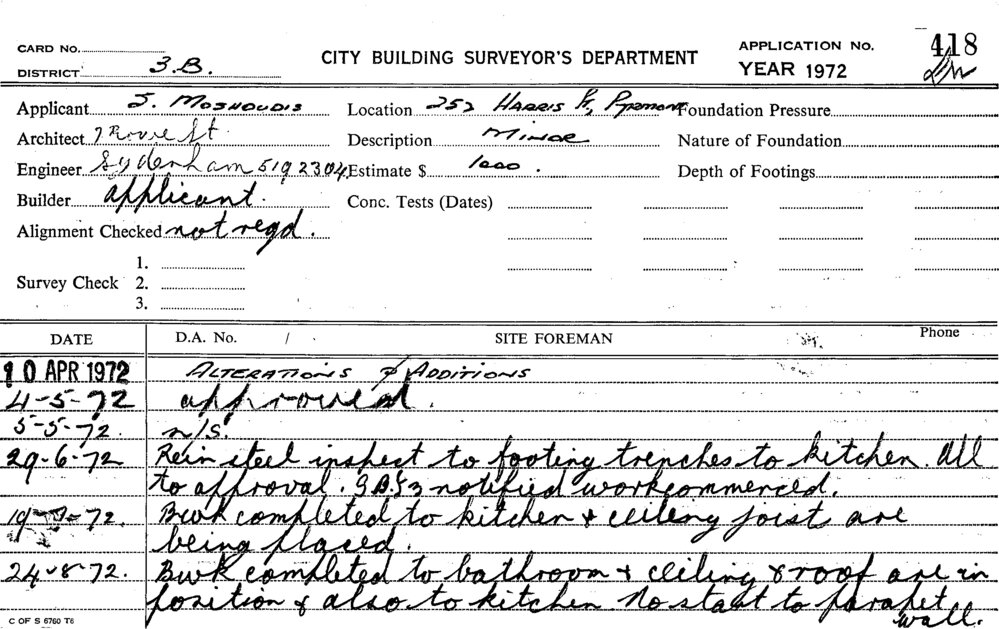 CARD No.
DISTRICT 3.B.
CITY BUILDING SURVEYOR'S DEPARTMENT
APPLICATION No. 418
YEAR 1972
Applicant S. MOSHOUDIS Location 252 HARRIS St, PYRMONT Foundation Pressure
Architect St. Description MINOR Nature of Foundation
Engineer Sydenham 5192304 Estimate $ 1000. Depth of Footings
Builder applicant. Conc. Tests (Dates)
Alignment Checked not reqd.
1.
Survey Check 2.
3.
DATE D.A. No. / SITE FOREMAN Phone
10 APR 1972 ALTERATIONS & ADDITIONS
4-5-72 approved.
5-5-72. n/s.
29-6-72 Rein steel inspect to footing trenches to kitchen. All
to approval. notified work commenced.
72. Bwk completed to kitchen & ceiling joist are
being placed.
24-8-72. Bwk completed to bathroom & ceiling & roof are in
position & also to kitchen No start to parapet
wall.
C OF S 6760 T6